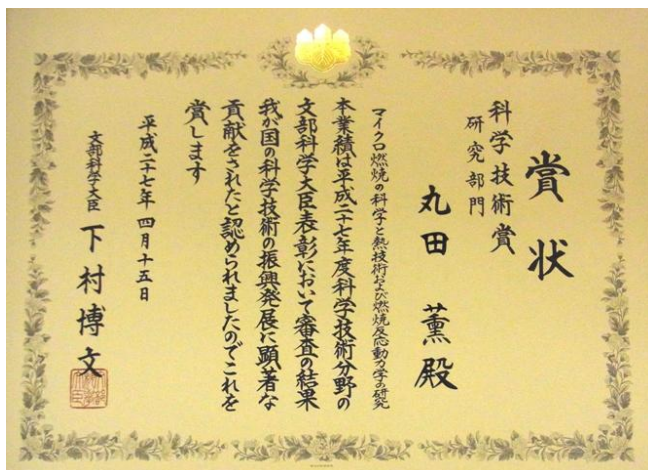 賞状
科学技術賞
研究部門
丸田 薫殿
マイクロ燃焼の科学と熱技術および燃焼反応動力学の研究
本業績は平成二十七年度科学技術分野の
文部科学大臣表彰において審査の結果
我が国の科学技術の振興発展に顕著な
貢献をされたと認められましたのでこれを
賞します
平成二十七年 四月十五日
文部科学大臣 下村博文